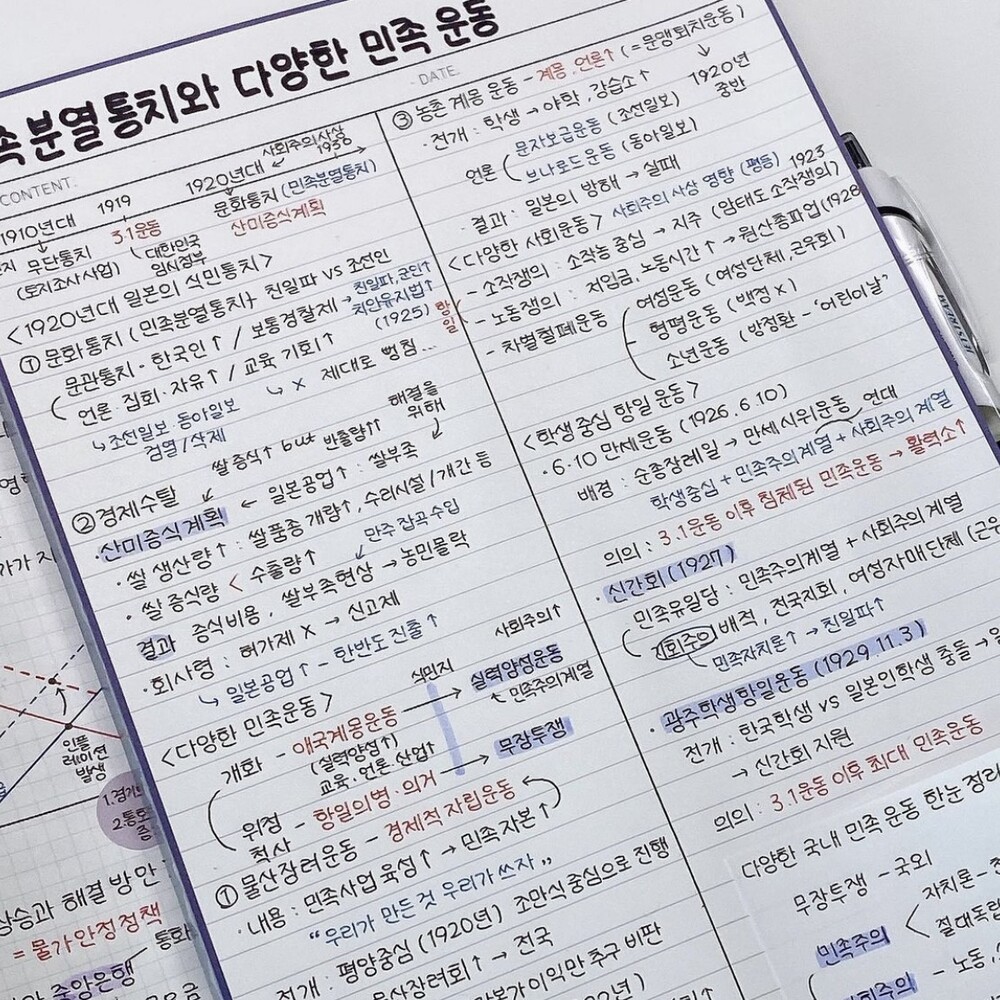 족분열통치와 다양한 민족 운동
CONTENT.
DATE.
1910년대 1919 1920년대 사회주의사상 1930
무단통치 3.1운동 문화통치 (민족분열통치)
(토지조사사업) 대한민국 임시정부 산미증식계획
<1920년대 일본의 식민통치>
① 문화통치 (민족분열통치) 친일파 vs 조선인
문관통치 - 한국인↑ / 보통경찰제 → 친일파, 군인↑ 치안유지법↑ (1925) 항일
언론·집회·자유↑ / 교육 기회↑
↳ 조선일보 동아일보 검열/삭제
↳ X 제대로 뻥침...
② 경제수탈
쌀 증식↑ but 반출량↑↑ 해결을 위해
·산미증식계획 ← 일본공업↑ : 쌀부족
·쌀 생산량↑ : 쌀품종 개량↑, 수리시설/개간 등
·쌀 증식량 < 수출량↑ 만주 잡곡수입
결과 증식비용, 쌀부족현상 → 농민몰락
·회사령 : 허가제 X → 신고제
↳ 일본공업↑ - 한반도 진출↑
<다양한 민족운동>
사회주의↑
식민지
개화 - 애국계몽운동 → 실력양성운동
(실력양성↑) 교육·언론 산업↑ 민족주의계열
위정척사 - 항일의병·의거 → 무장투쟁
① 물산장려운동 - 경제적 자립운동
·내용 : 민족사업 육성↑ → 민족자본↑
"우리가 만든 것 우리가 쓰자"
전개 : 평양중심 (1920년) 조만식 중심으로 진행
산장려회↑ → 전국
본가 이익만 추구 비판
③ 농촌 계몽 운동 - 계몽, 언론↑ (=문맹퇴치운동)
1920년 중반
·전개 : 학생 → 야학, 강습소↑
언론 문자보급운동 (조선일보)
브나로드운동 (동아일보)
결과 : 일본의 방해 → 실패
<다양한 사회운동> 사회주의 사상 영향 (평등) 1923
- 소작쟁의 : 소작농 중심 → 지주 (암태도 소작쟁의)
- 노동쟁의 : 저임금, 노동시간↑ → 원산총파업 (1928
- 차별철폐운동 여성운동 (여성단체, 근우회)
형평운동 (백정 X)
소년운동 (방정환 - '어린이날'
<학생중심 항일 운동>
·6.10 만세운동 (1926.6.10)
배경 : 순종장례일 → 만세시위운동 연대
학생중심 + 민족주의계열 + 사회주의 계열
의의 : 3.1운동 이후 침체된 민족운동 → 활력소↑
·신간회 (1927)
민족유일당 : 민족주의계열 + 사회주의 계열
기회주의 배척, 전국지회, 여성자매단체 (근우
민족자치론↑ → 친일파↑
·광주학생항일운동 (1929.11.3)
전개 : 한국학생 vs 일본인학생 충돌 →
→ 신간회 지원
의의 : 3.1운동 이후 최대 민족운동
다양한 국내 민족 운동 한눈 정리
무장투쟁 - 국외
민족주의 < 자치론 -
절대독립
사회주의 - 노동,
인플레이션 발생
1.경기
2.통화
상승과 해결 방안
= 물가안정정책
통화
중앙은행